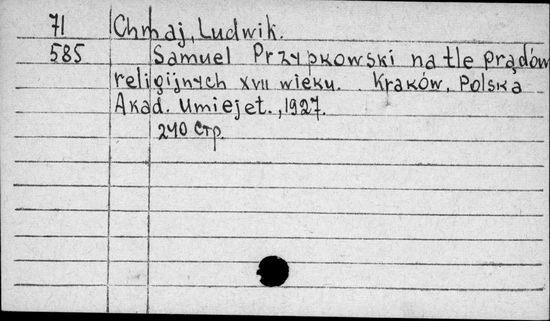 71 Chmaj, Ludwik.
585 Samuel Przypkowski na tle prądów
religijnych XVII wieku. Kraków, Polska
Akad. Umiejet., 1927.
240 стр.